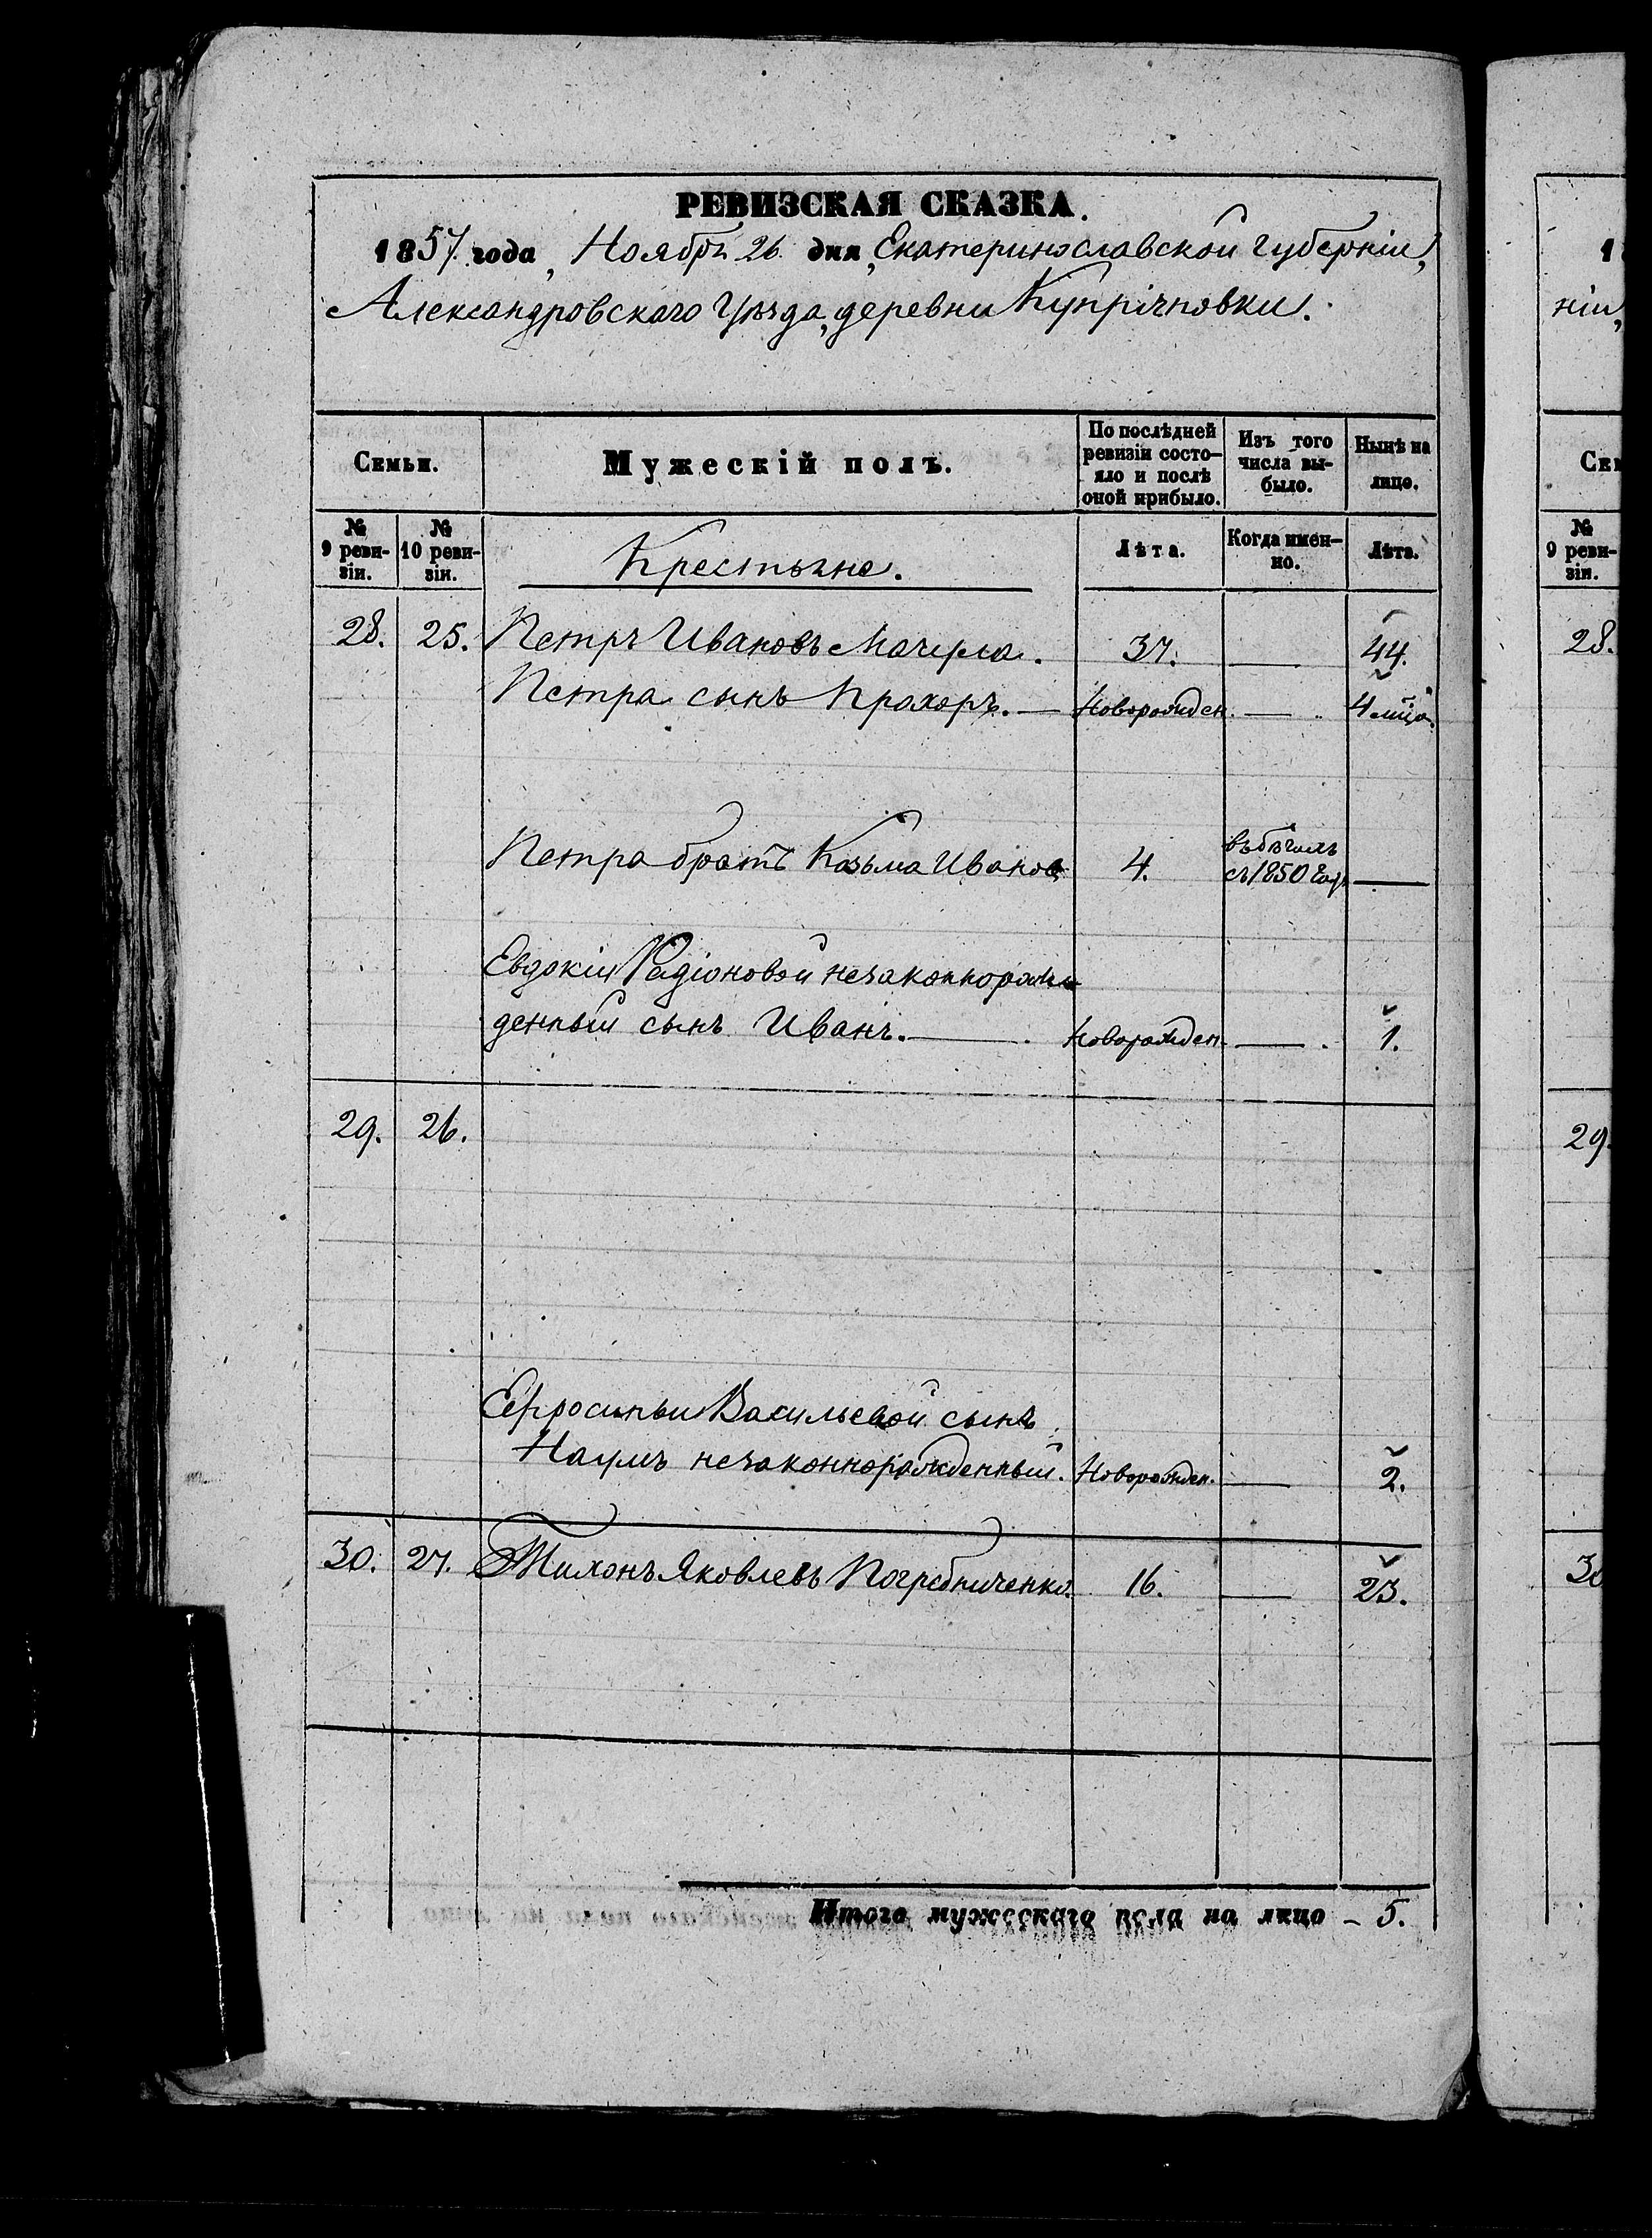 РЕВИЗСКАЯ СКАЗКА.
1857 года, Ноябрь 26 дня, Екатеринославской губерніи,
Александровскаго Уѣзда, деревни Купріяновки.
Семьи.
Мужескій полъ.
По послѣдней ревизіи состо-яло и послѣ оной прибыло.
Изъ того числа вы-было.
Нынѣ на лицо.
№ 9 реви-зіи.
№ 10 реви-зіи.
Крестьяне.
Лѣта.
Когда имен-но.
Лѣта.
28. 25. Петръ Ивановъ Мачула. 37. — 44.
Петра сынъ Прохоръ. — Новорожден. — 4 мѣца.
Петра братъ Козьма Иванов 4. въ бѣгахъ съ 1850 год. —
Евдокіи Радіоновой незаконнорож
денный сынъ Иванъ. — Новорожден. — 1.
29. 26.
Ефросиньи Васильевой сынъ
Наумъ незаконнорожденный. Новорожден. — 2.
30. 27. Тихонъ Яковлевъ Погребниченко. 16. — 23.
Итого мужескаго пола на лицо – 5.
ніи,
Сем
№ 9 реви-зіи.
28.
29.
30